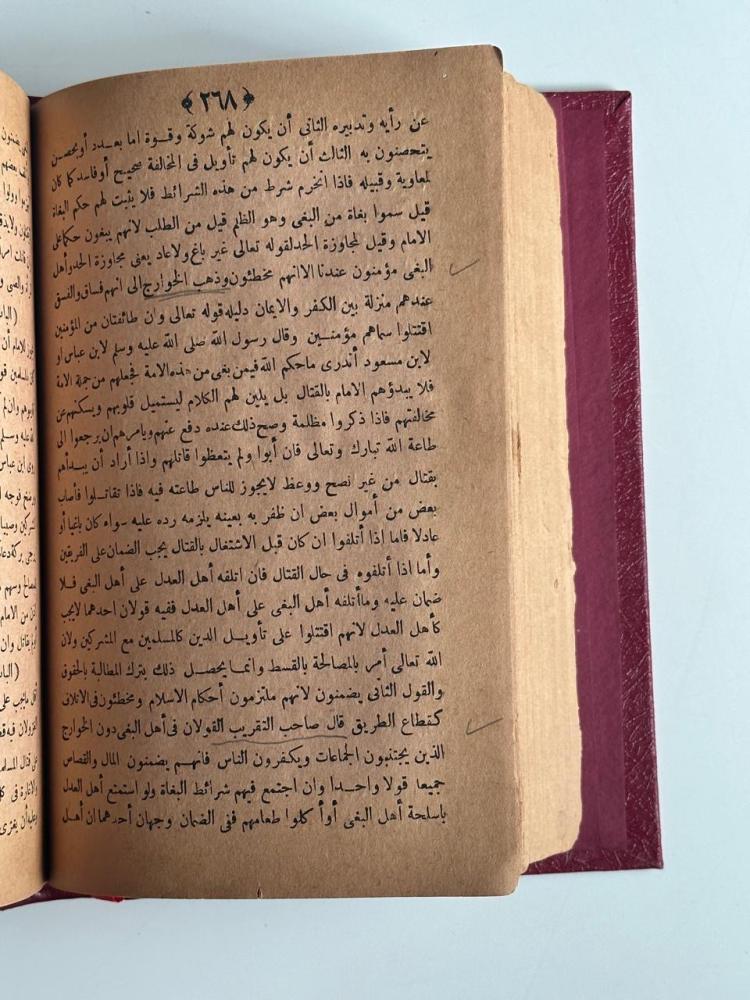 ﴿٢٦٨﴾
عن رأيه وتدبيره الثانى أن يكون لهم شوكة وقوة اما بعدد أوبحصن
يتحصنون به الثالث أن يكون لهم تأويل فى المخالفة صحيح أوفاسد كما كان
لمعاوية وقبيله فاذا انخرم شرط من هذه الشرائط فلا يثبت لهم حكم البغاة
قيل سموا بغاة من البغى وهو الظلم قيل من الطلب لانهم يبغون حكما على
الامام وقيل لمجاوزة الحد لقوله تعالى غير باغ ولاعاد يعنى مجاوزة الحد وأهل
البغى مؤمنون عندنا الا انهم مخطئون وذهب الخوارج الى انهم فساق والفسق
عندهم منزلة بين الكفر والايمان دليله قوله تعالى وان طائفتان من المؤمنين
اقتتلوا سماهم مؤمنين وقال رسول الله صلى الله عليه وسلم لابن عباس أو
لابن مسعود أتدرى ماحكم الله فيمن بغى من هذه الامة فجعلهم من جملة الامة
فلا يبدؤهم الامام بالقتال بل يلين لهم الكلام ليستميل قلوبهم ويسكنهم عن
مخالفتهم فاذا ذكروا مظلمة وصح ذلك عنده دفع عنهم ويامرهم ان يرجعوا الى
طاعة الله تبارك وتعالى فان أبوا ولم يتعظوا قاتلهم واذا أراد أن يبدأهم
بقتال من غير نصح ووعظ لايجوز للناس طاعته فيه فاذا تقاتلوا فأصاب
بعض من أموال بعض ان ظفر به بعينه يلزمه رده عليه سواء كان باغيا أو
عادلا فاما اذا أتلفوا ان كان قبل الاشتغال بالقتال يجب الضمان على الفريقين
وأما اذا أتلفوه فى حال القتال فان اتلفه أهل العدل على أهل البغى فلا
ضمان عليه وماأتلفه أهل البغى على أهل العدل ففيه قولان احدهما لايجب
كأهل العدل لانهم اقتتلوا على تأويل الدين كالمسلمين مع المشركين ولان
الله تعالى أمر بالمصالحة بالقسط وانما يحصل ذلك بترك المطالبة بالحقوق
والقول الثانى يضمنون لانهم ملتزمون أحكام الاسلام ومخطئون فى الاتلاف
كقطاع الطريق قال صاحب التقريب القولان فى أهل البغى دون الخوارج
الذين يجتنبون الجماعات ويكفرون الناس فانهم يضمنون المال والقصاص
جميعا قولا واحدا وان اجتمع فيهم شرائط البغاة ولو استمتع أهل العدل
باسلحة أهل البغى أو أكلوا طعامهم ففى الضمان وجهان أحدهما ان أهل